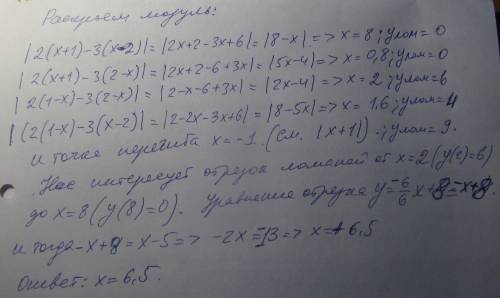 Раскроем модуль:
|2(x+1)-3(x-2)|=|2x+2-3x+6|=|8-x|=>x=8; улом=0
|2(x+1)-3(2-x)|=|2x+2-6+3x|=|5x-4|=>x=0,8; улом=0
|2(1-x)-3(2-x)|=|2-x-6+3x|=|2x-4|=>x=2; улом=6
|(2(1-x)-3(x-2)|=|2-2x-3x+6|=|8-5x|=>x=1,6; улом=4
и точке перегиба x=-1. (см. |x+1|).; улом=9.
Нас интересует отрезок ломаной от x=2 (y(2)=6)
до x=8 (y(8)=0). Уравнение отрезка y=-6/6x+8=-x+8.
и тогда -x+8=x-5=> -2x=-13=> x=+6,5
Ответ: x=6,5.